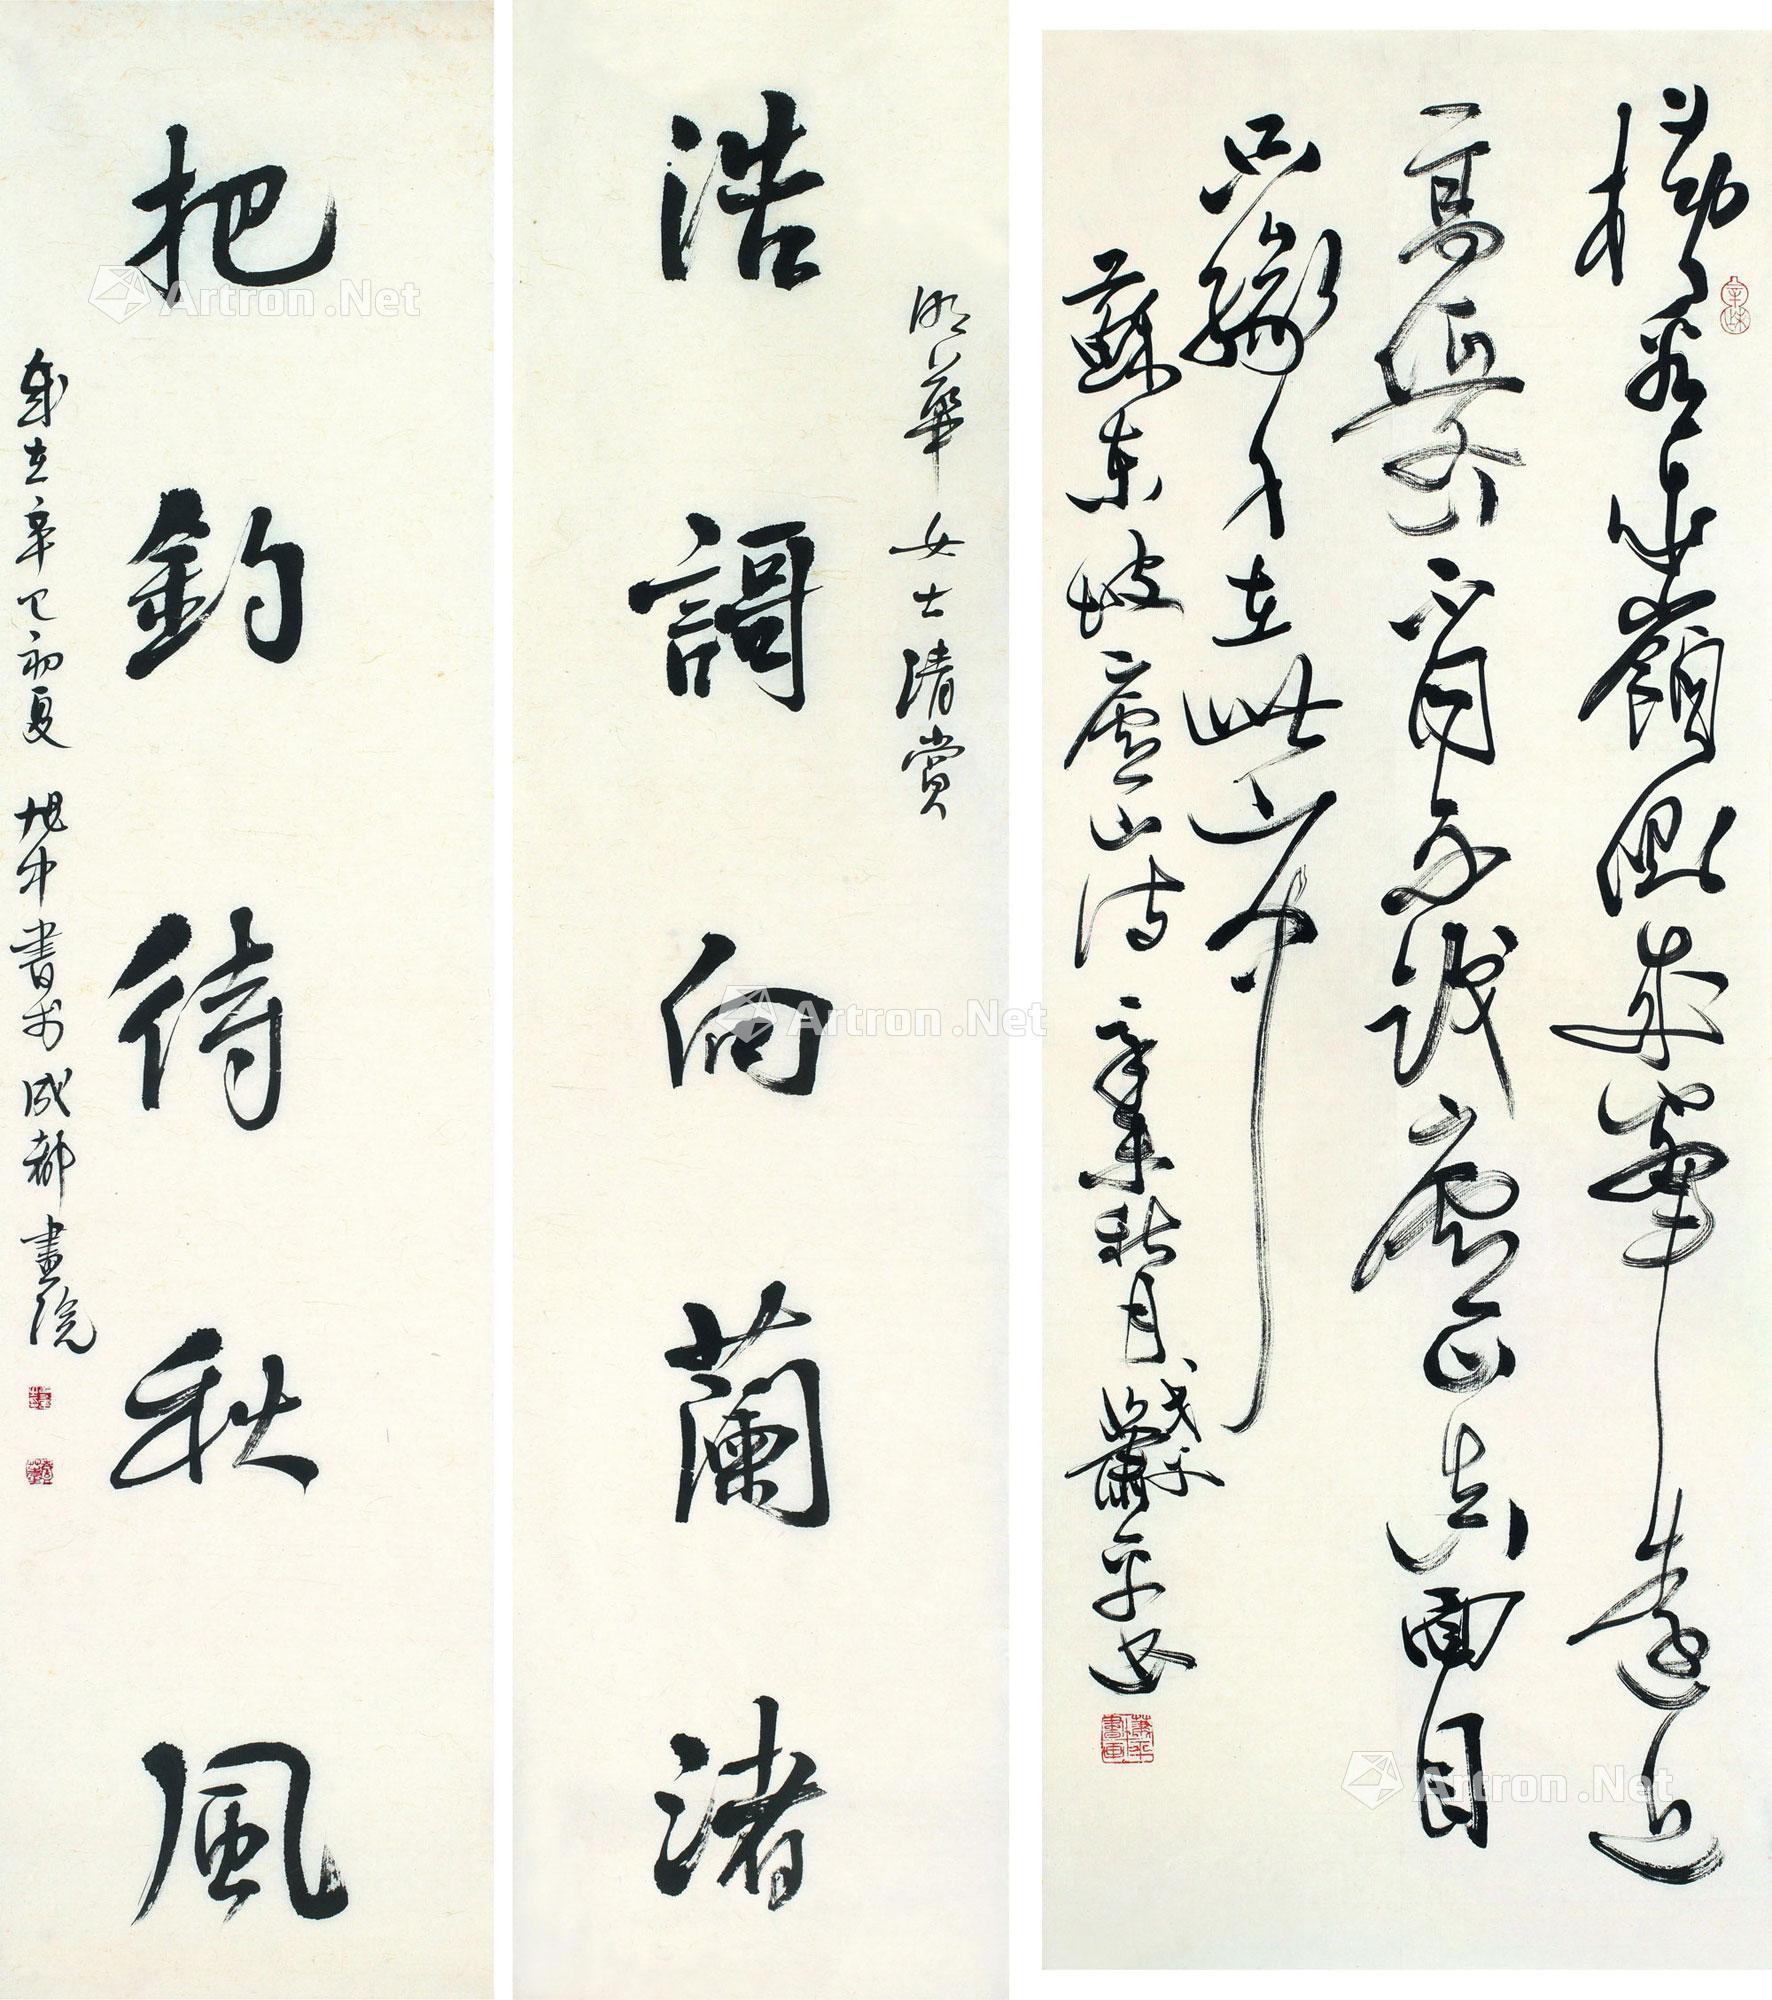 橫看成嶺側成峰遠近
高低各不同不識廬山真面目
只緣身在此山中
蘇東坡廬山詩 辛未秋月 蕭平書
明華女士清賞
浩謌向蘭渚
把釣待秋風
歲在辛巳初夏 旭中書於成都畫院
Artron.Net
Artron.Net
Artron.Net